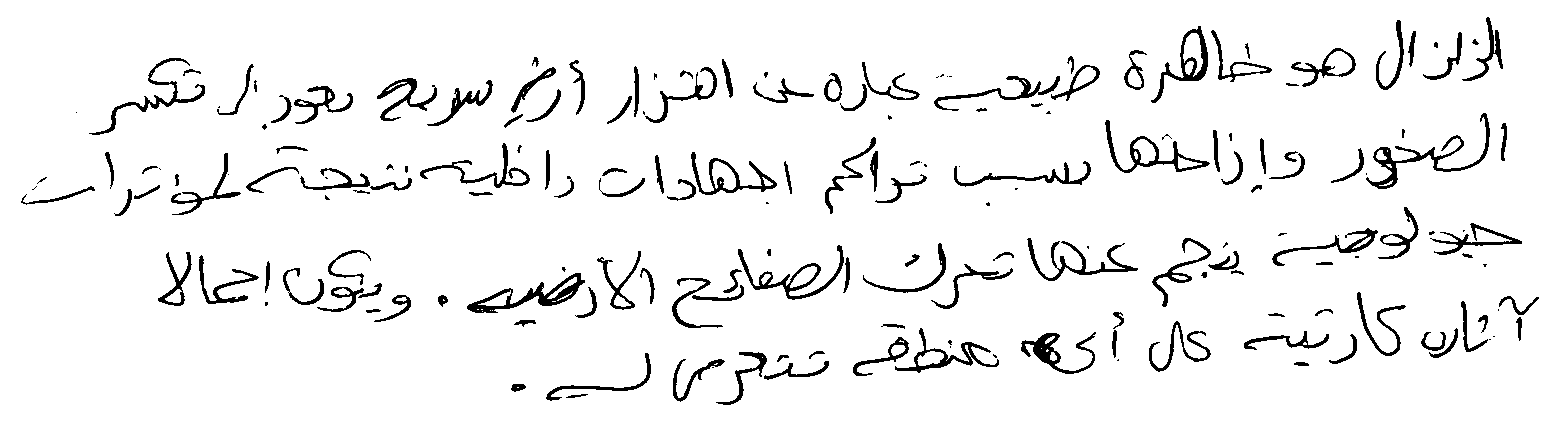 الزلزال هو ظاهرة طبيعية عبارة عن اهتزاز أرضي سريع يعود الى تكسر
الصخور وإزاحتها بسبب تراكم اجهادات داخلية نتيجة لمؤثرات
جيولوجية ينجم عنها تحرك الصفائح الأرضية . ويكون اجمالا
آثاره كارثية على أي منطقة تتعرض له .